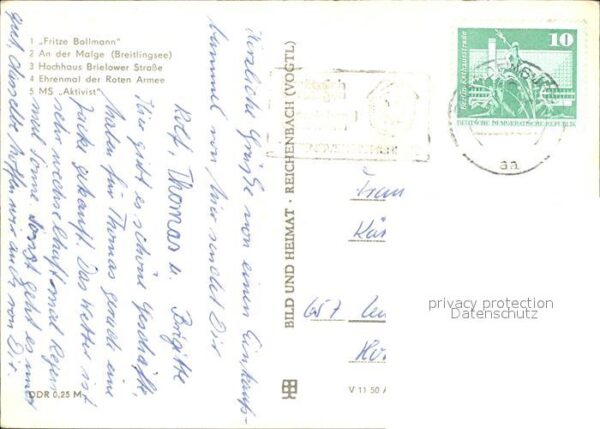 1 „Fritze Bollmann"
2 An der Malge (Breitlingsee)
3 Hochhaus Brielower Straße
4 Ehrenmal der Roten Armee
5 MS „Aktivist"
Herzliche Grüße von einem Einkaufs-
bummel von hier sendet Dir
Rolf, Thomas u. Brigitte
Hier gibt es schöne Geschäfte,
haben für Thomas gerade eine
Jacke gekauft. Das Wetter ist
sehr wechselhaft mal Regen
mal Sonne. Sonst geht es uns
gut, dasselbe hoffen wir auch von Dir.
DDR 0,25 M
BILD UND HEIMAT · REICHENBACH (VOGTL)
V 11 50 A
10
Berlin, Rathausstraße
DEUTSCHE DEMOKRATISCHE REPUBLIK
Frau
657
privacy protection
Datenschutz